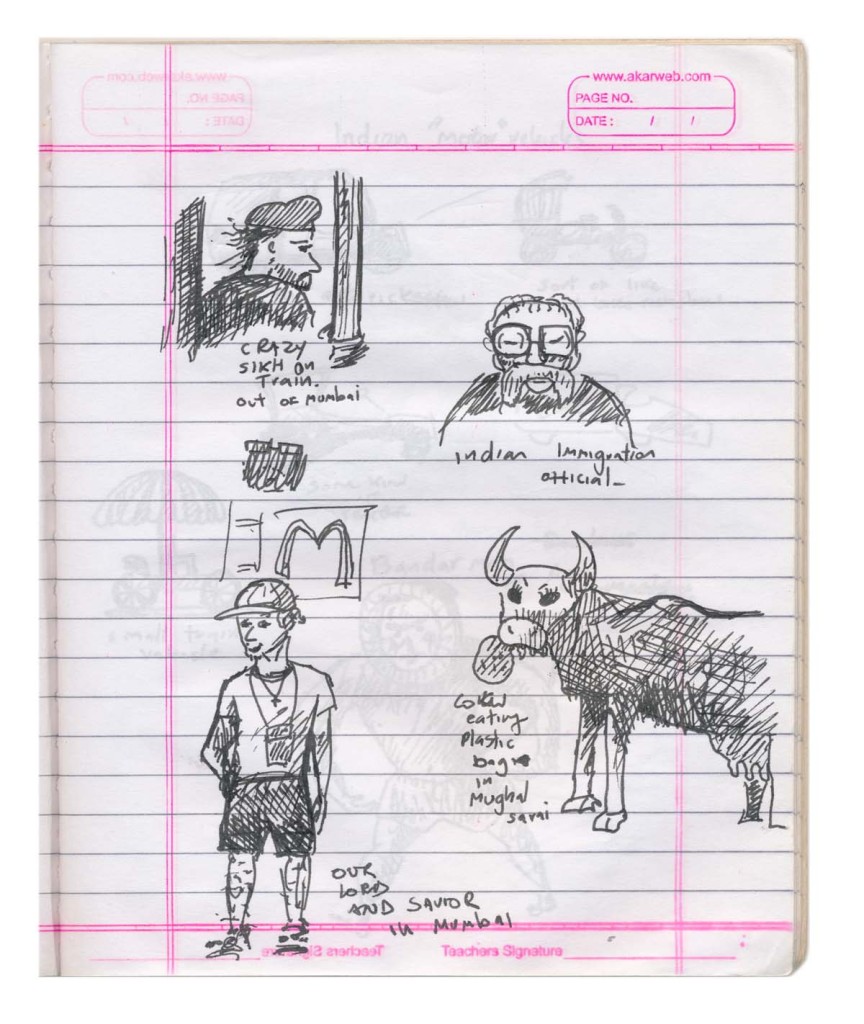 www.akarweb.com
PAGE NO.
DATE : / /
CRAZY
SIKH on
Train.
out of Mumbai
Indian Immigration
official
M
eating
Plastic
bag
in
Mughal
sarai
OUR
LORD
AND SAVIOR
in Mumbai
Teachers Signature